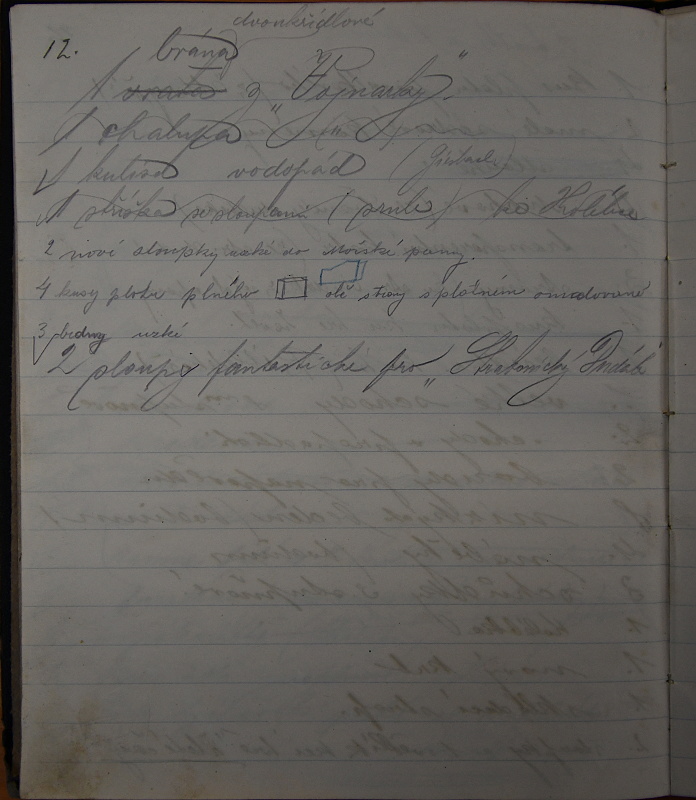 dvoukřídlové
12. brána
1 vrata z „Vojnarky“
1 chalupa
1 kulisa vodopád
1 stříška se sloupama ( ) ke Kolébce
2 nové sloupky úzké do Mořské panny.
4 kusy plotu plného dvě strany s plátném omalované
3 bedny úzké
2 sloupy fantastické pro „Strakonický Dudák“